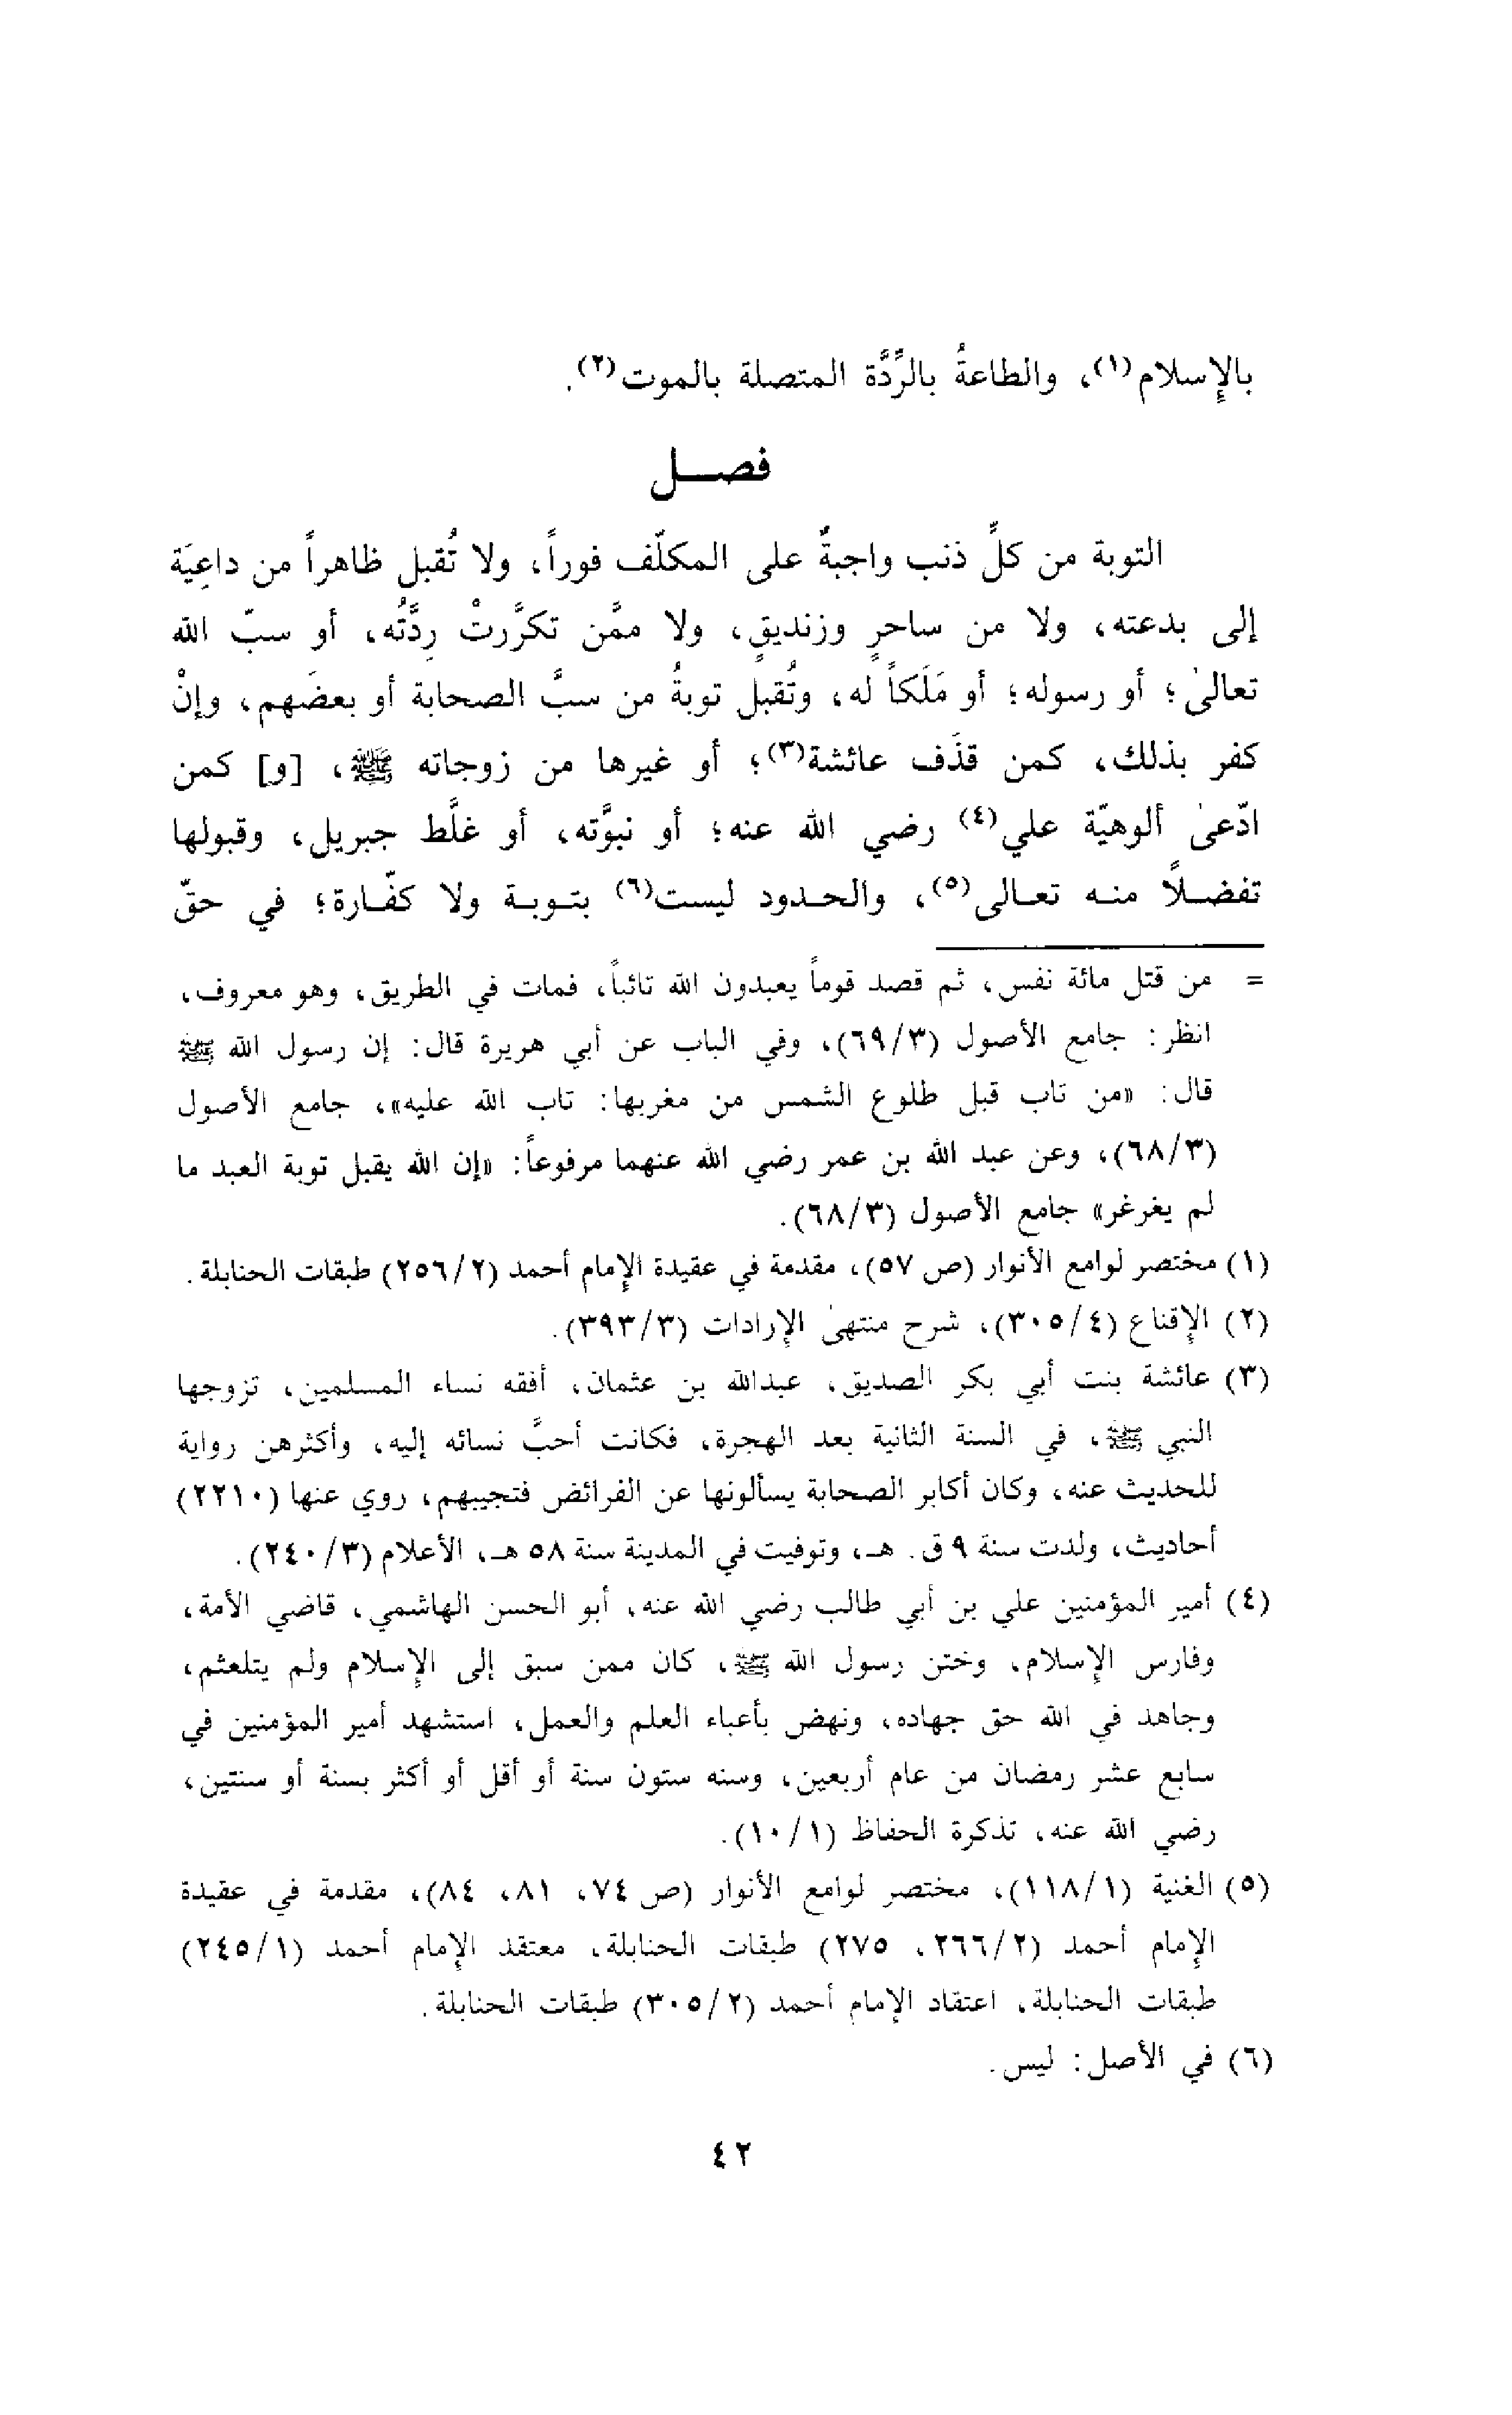 بالإسلام(١)، والطاعةُ بالرِّدَّة المتصلة بالموت(٢).
فصـــل
التوبة من كلِّ ذنب واجبةٌ على المكلّف فوراً، ولا تُقبل ظاهراً من داعِيَة
إلى بدعته، ولا من ساحرٍ وزنديقٍ، ولا ممَّن تكرَّرتْ رِدَّتُه، أو سبّ الله
تعالىٰ؛ أو رسوله؛ أو مَلَكاً له، وتُقبل توبةُ من سبَّ الصحابة أو بعضَهم، وإنْ
كفر بذلك، كمن قذَف عائشة(٣)؛ أو غيرها من زوجاته ﷺ، [و] كمن
ادّعىٰ ألوهيّة علي(٤) رضي الله عنه؛ أو نبوَّته، أو غلَّط جبريل، وقبولها
تفضـلاً منـه تعـالى(٥)، والحـدود ليست(٦) بتـوبـة ولا كفّـارة؛ في حقّ
= من قتل مائة نفس، ثم قصد قوماً يعبدون الله تائباً، فمات في الطريق، وهو معروف،
انظر: جامع الأصول (٦٩/٣)، وفي الباب عن أبي هريرة قال: إن رسول الله ﷺ
قال: «من تاب قبل طلوع الشمس من مغربها: تاب الله عليه»، جامع الأصول
(٦٨/٣)، وعن عبد الله بن عمر رضي الله عنهما مرفوعاً: «إن الله يقبل توبة العبد ما
لم يغرغر» جامع الأصول (٦٨/٣).
(١) مختصر لوامع الأنوار (ص ٥٧)، مقدمة في عقيدة الإمام أحمد (٢٥٦/٢) طبقات الحنابلة.
(٢) الإقناع (٣٠٥/٤)، شرح منتهىٰ الإرادات (٣٩٣/٣).
(٣) عائشة بنت أبي بكر الصديق، عبدالله بن عثمان، أفقه نساء المسلمين، تزوجها
النبي ﷺ، في السنة الثانية بعد الهجرة، فكانت أحبَّ نسائه إليه، وأكثرهن رواية
للحديث عنه، وكان أكابر الصحابة يسألونها عن الفرائض فتجيبهم، روي عنها (٢٢١٠)
أحاديث، ولدت سنة ٩ ق. هـ، وتوفيت في المدينة سنة ٥٨ هـ، الأعلام (٢٤٠/٣).
(٤) أمير المؤمنين علي بن أبي طالب رضي الله عنه، أبو الحسن الهاشمي، قاضي الأمة،
وفارس الإسلام، وختن رسول الله ﷺ، كان ممن سبق إلى الإسلام ولم يتلعثم،
وجاهد في الله حق جهاده، ونهض بأعباء العلم والعمل، استشهد أمير المؤمنين في
سابع عشر رمضان من عام أربعين، وسنه ستون سنة أو أقل أو أكثر بسنة أو سنتين،
رضي الله عنه، تذكرة الحفاظ (١٠/١).
(٥) الغنية (١١٨/١)، مختصر لوامع الأنوار (ص ٧٤، ٨١، ٨٤)، مقدمة في عقيدة
الإمام أحمد (٢٦٦/٢، ٢٧٥) طبقات الحنابلة، معتقد الإمام أحمد (٢٤٥/١)
طبقات الحنابلة، اعتقاد الإمام أحمد (٣٠٥/٢) طبقات الحنابلة.
(٦) في الأصل: ليس.
٤٢